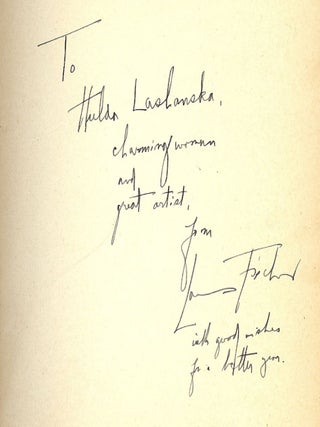 To
Hulda Lashanska,
charming woman
and
great artist,
from
Louis Fischer
with good wishes
for a better year.